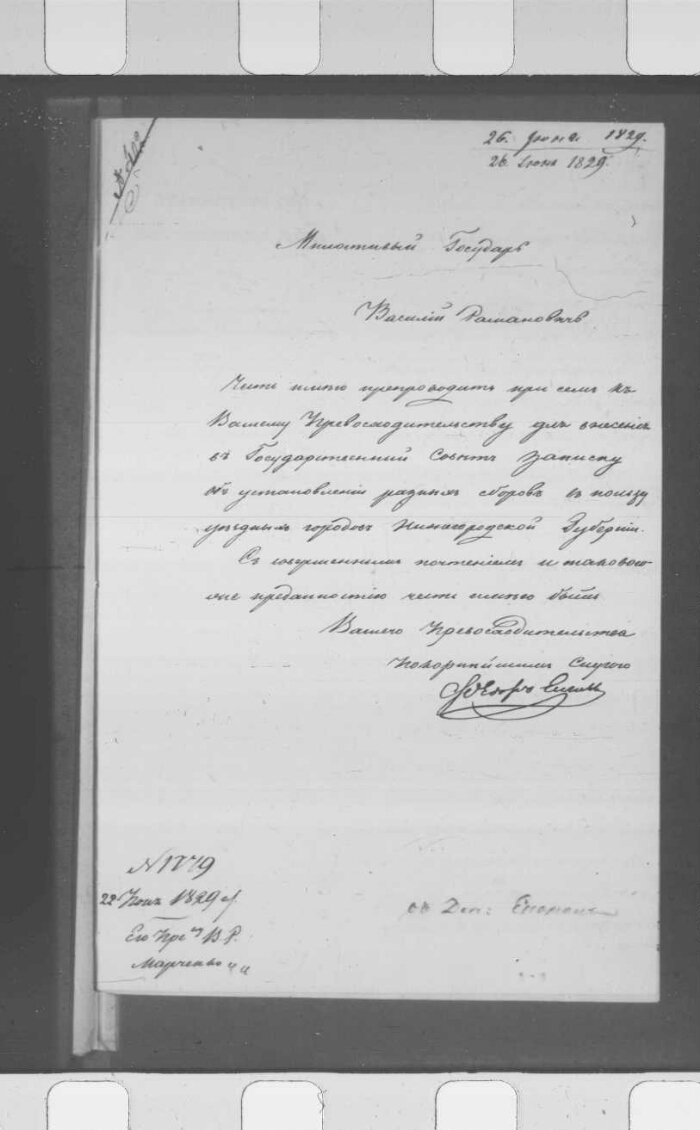 26. Июня 1829.
26 Июня 1829.
Милостивый Государь
Василій Романовичь
Честь имѣю препроводить при семъ къ
Вашему Превосходительству для внесенія
въ Государственный Совѣтъ записку
объ установленіи разныхъ сборовъ въ пользу
уѣздныхъ городовъ Нижегородской Губерніи.
Съ совершеннымъ почтеніемъ и таковою
же преданностію честь имѣю быть
Вашего Превосходительства
Покорнѣйшимъ Слугою
N 1779
22 Іюня 1829
Его Пр. В. Р.
Марченко
въ Деп: Економіи